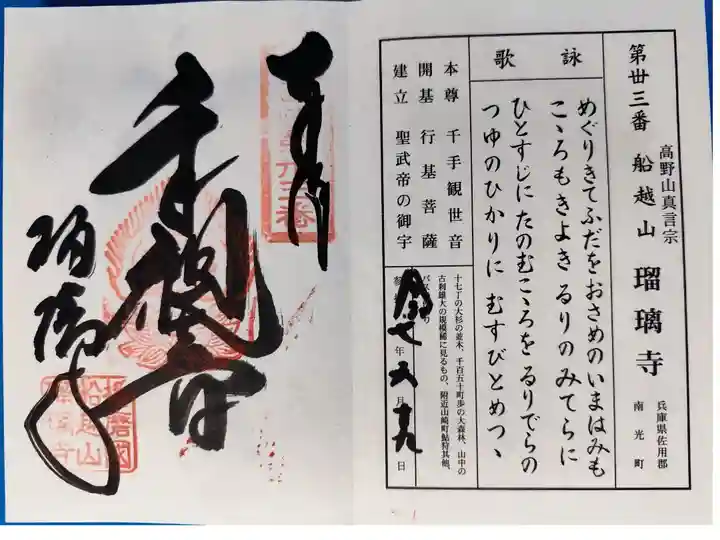 第丗三番 船越山 瑠璃寺
高野山真言宗
兵庫県佐用郡
南光町
詠歌
めぐりきてふだをおさめのいまはみも
こゝろもきよきるりのみてらに
ひとすじにたのむこゝろをるりでらの
つゆのひかりにむすびとめつゝ
本尊 千手観世音
開基 行基菩薩
建立 聖武帝の御宇
十七丁の大杉の並木、千百五十町歩の大森林、山中の
古刹雄大の規模稀に見るもの、附近山崎町鮎狩其他、
年 六月 日
奉拝
千手観音
瑠璃寺
播磨國
船越山
瑠璃寺